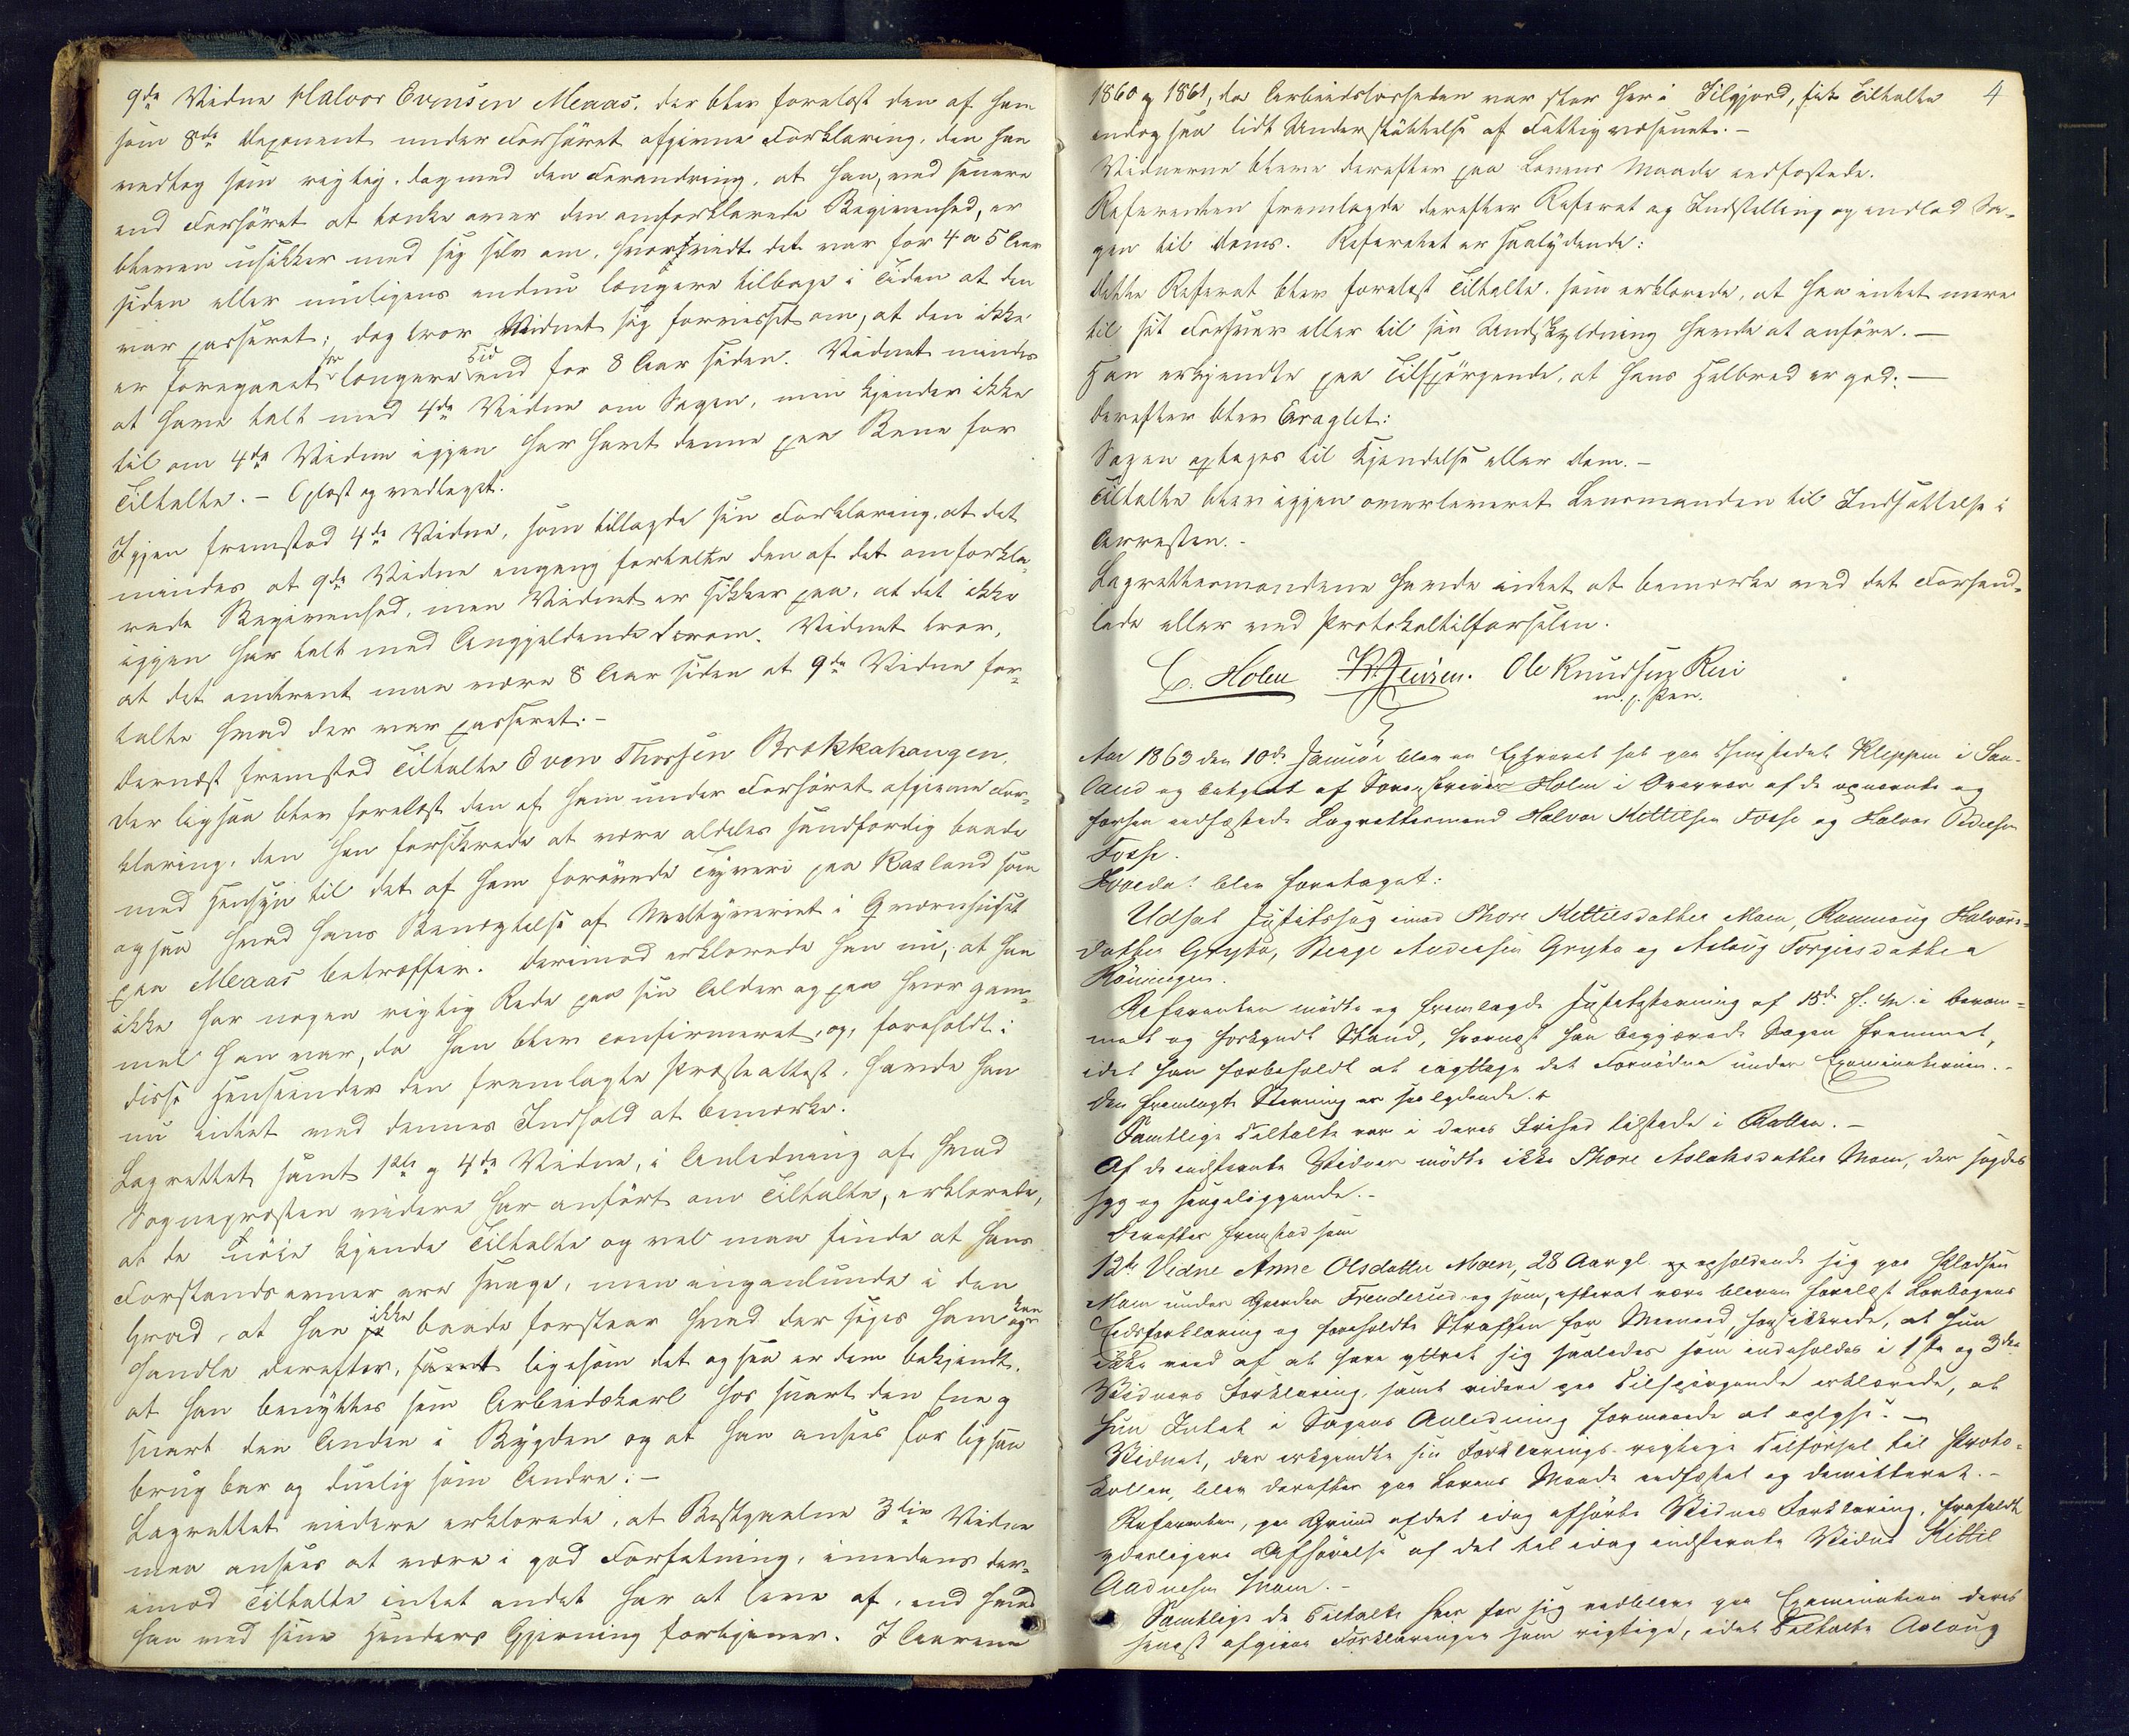 9de Vidne Halvor Evensen Meaas, der blev forelæst den af ham
som 8de Deponent under Forhøret afgivne Forklaring, den han
vedtog som rigtig, dog med den Forandring, at han, ved senere
end Forhøret at tænke over den omforklarede Begivenhed, er
bleven usikker med sig selv om, hvorvidt det var for 4 a 5 Aar
siden eller muligens endnu længere tilbage i Tiden at den
var passeret; dog tror Vidnet sig forvisset om, at den ikke
er foregaaet for længere Tid end for 8 Aar siden. Vidnet mindes
at have talt med 4de Vidne om Sagen, men kjender ikke
til om 4de Vidne igjen har havt denne paa Bane for
Tiltalte. – Oplæst og vedtaget.
Igjen fremstod 4de Vidne, som tillagde sin Forklaring, at det
mindes at 9de Vidne engang fortalte den af det omforkla-
rede Begivenhed, men Vidnet er sikker paa, at det ikke
igjen har talt med Angjeldende derom. Vidnet tror,
at det omtrent maa være 8 Aar siden at 9de Vidne for-
talte hvad der var passeret. –
Dernæst fremstod Tiltalte Even Thorsen Brækkahaugen,
der ligesaa blev forelæst den af ham under Forhøret afgivne For-
klaring, den han forsikrede at være aldeles sandfærdig baade
med Hensyn til det af ham forøvede Tyveri paa Rasland som
ogsaa hvad hans Benægtelse af Meeltyveriet i Qværnhuset
paa Meaas betræffer. Derimod erklærede han nu, at han
ikke har nogen rigtig Rede paa sin Alder og paa hvor gam-
mel han var, da han blev confirmeret, og, foreholdt i
disse Henseender den fremlagte Præsteattest, havde han
nu intet ved dennes Indhold at bemærke.
Lagrettet samt 1ste og 4de Vidne, i Anledning af hvad
Sognepræsten videre har anført om Tiltalte, erklærede,
at de nøie kjende Tiltalte og vel maa sande at hans
Forstandsevner ere svage, men ingenlunde i den
Grad, at han ikke baade forstaar hvad der siges ham og kan
handle derefter, samt ligesom det ogsaa er dem bekjendt,
at han benyttes som Arbeidskarl hos snart den Ene og
snart den Anden i Bygden og at han ansees for ligesaa
brugbar og duelig som Andre. –
Lagrettet videre erklærede, at Bestjaalne 3die Vidne
maa ansees at være i god Forfatning, imedens der-
imod Tiltalte intet andet har at leve af, end hvad
han ved sine Hænders Gjerning fortjener. I Aarene
4
1860 og 1861, da Arbeidsløsheden var stor her i Silgjord, fik Tiltalte
endog saa lidt Understøttelse af Fattigvæsenet. –
Vidnerne bleve derefter paa Lovens Maade eedfæstede.
Referenten fremlagde derefter Referat og Indstilling og indlod Sa-
gen til Doms. Referatet er saalydende:
Dette Referat blev forelæst Tiltalte, som erklærede, at han intet mere
til sit Forsvar eller til sin Undskyldning havde at anføre. –
Han erkjendte paa Tilspørgende, at hans Helbred er god. –
Derefter blev Eragtet:
Sagen optages til Kjendelse eller Dom. –
Tiltalte blev igjen overleveret Lensmanden til Indsættelse i
Arresten. –
Lagrettesmændene havde intet at bemærke ved det Forhand-
lede eller ved Protokoltilførselen.
C. Holm Jensen. Ole Knudsen Rui
m. p. Pen.
Aar 1863 den 10de Januar blev en Extraret sat paa Thingstedet Kleppen i Sau-
land og betjent af Sorenskriver Holm i Overvær af de opnævnte og
forhen eedfæstede Lagrettesmænd Halvor Kittilsen Fosse og Halvor Pedersen
Fosse.
Hvorda blev foretaget:
Udsat Justitssag imod Thore Kittilsdatter Moen, Rannoug Halvors-
datter Gryta, Aslaug Torgiersdatter
Referenten mødte og fremlagde Justitsstævning af 15de f. M. i beram-
met og forkyndt Stand, hvornæst han begjærede Sagen fremmet,
idet han forbeholdt at iagttage det Fornødne under Examinationen. –
Den fremlagte Stævning er saalydende:
Samtlige Tiltalte var i deres Frihed tilstede i Retten. –
Af de indstævnte Vidner mødte ikke Thore Aslaksdatter Moen, der sagdes
syg og sengeliggende. –
Derefter fremstod som
12te Vidne Anne Olsdatter Moen, 28 Aar gl. opholdende sig paa Pladsen
Moen under Gaarden og som, efterat være bleven forelæst Lovbogens
Eedsforklaring og foreholdte Straffen for Meeneed, forsikkrede, at hun
ikke veed af at have yttret sig saaledes som indeholdes i 1ste og 3die
Vidners Forklaring, samt videre paa Tilspørgende erklærede, at
hun Intet i Sagens Anledning formaaede at oplyse. –
Vidnet, der erkjendte sin Forklarings rigtige Tilførsel til Proto-
kollen, blev derefter paa Lovens Maade eedfæstet og demitteret. –
Referenten, paa Grund af det idag afhørte Vidnes Forklaring, frafaldt
yderligere Afhørelse af det til idag indstævnte Vidne Kittil
Aadnesen Moen. –
Samtlige de Tiltalte hver for sig vedbleve paa Examination deres
senest afgivne Forklaringer som rigtige, idet Tiltalte Aslaug